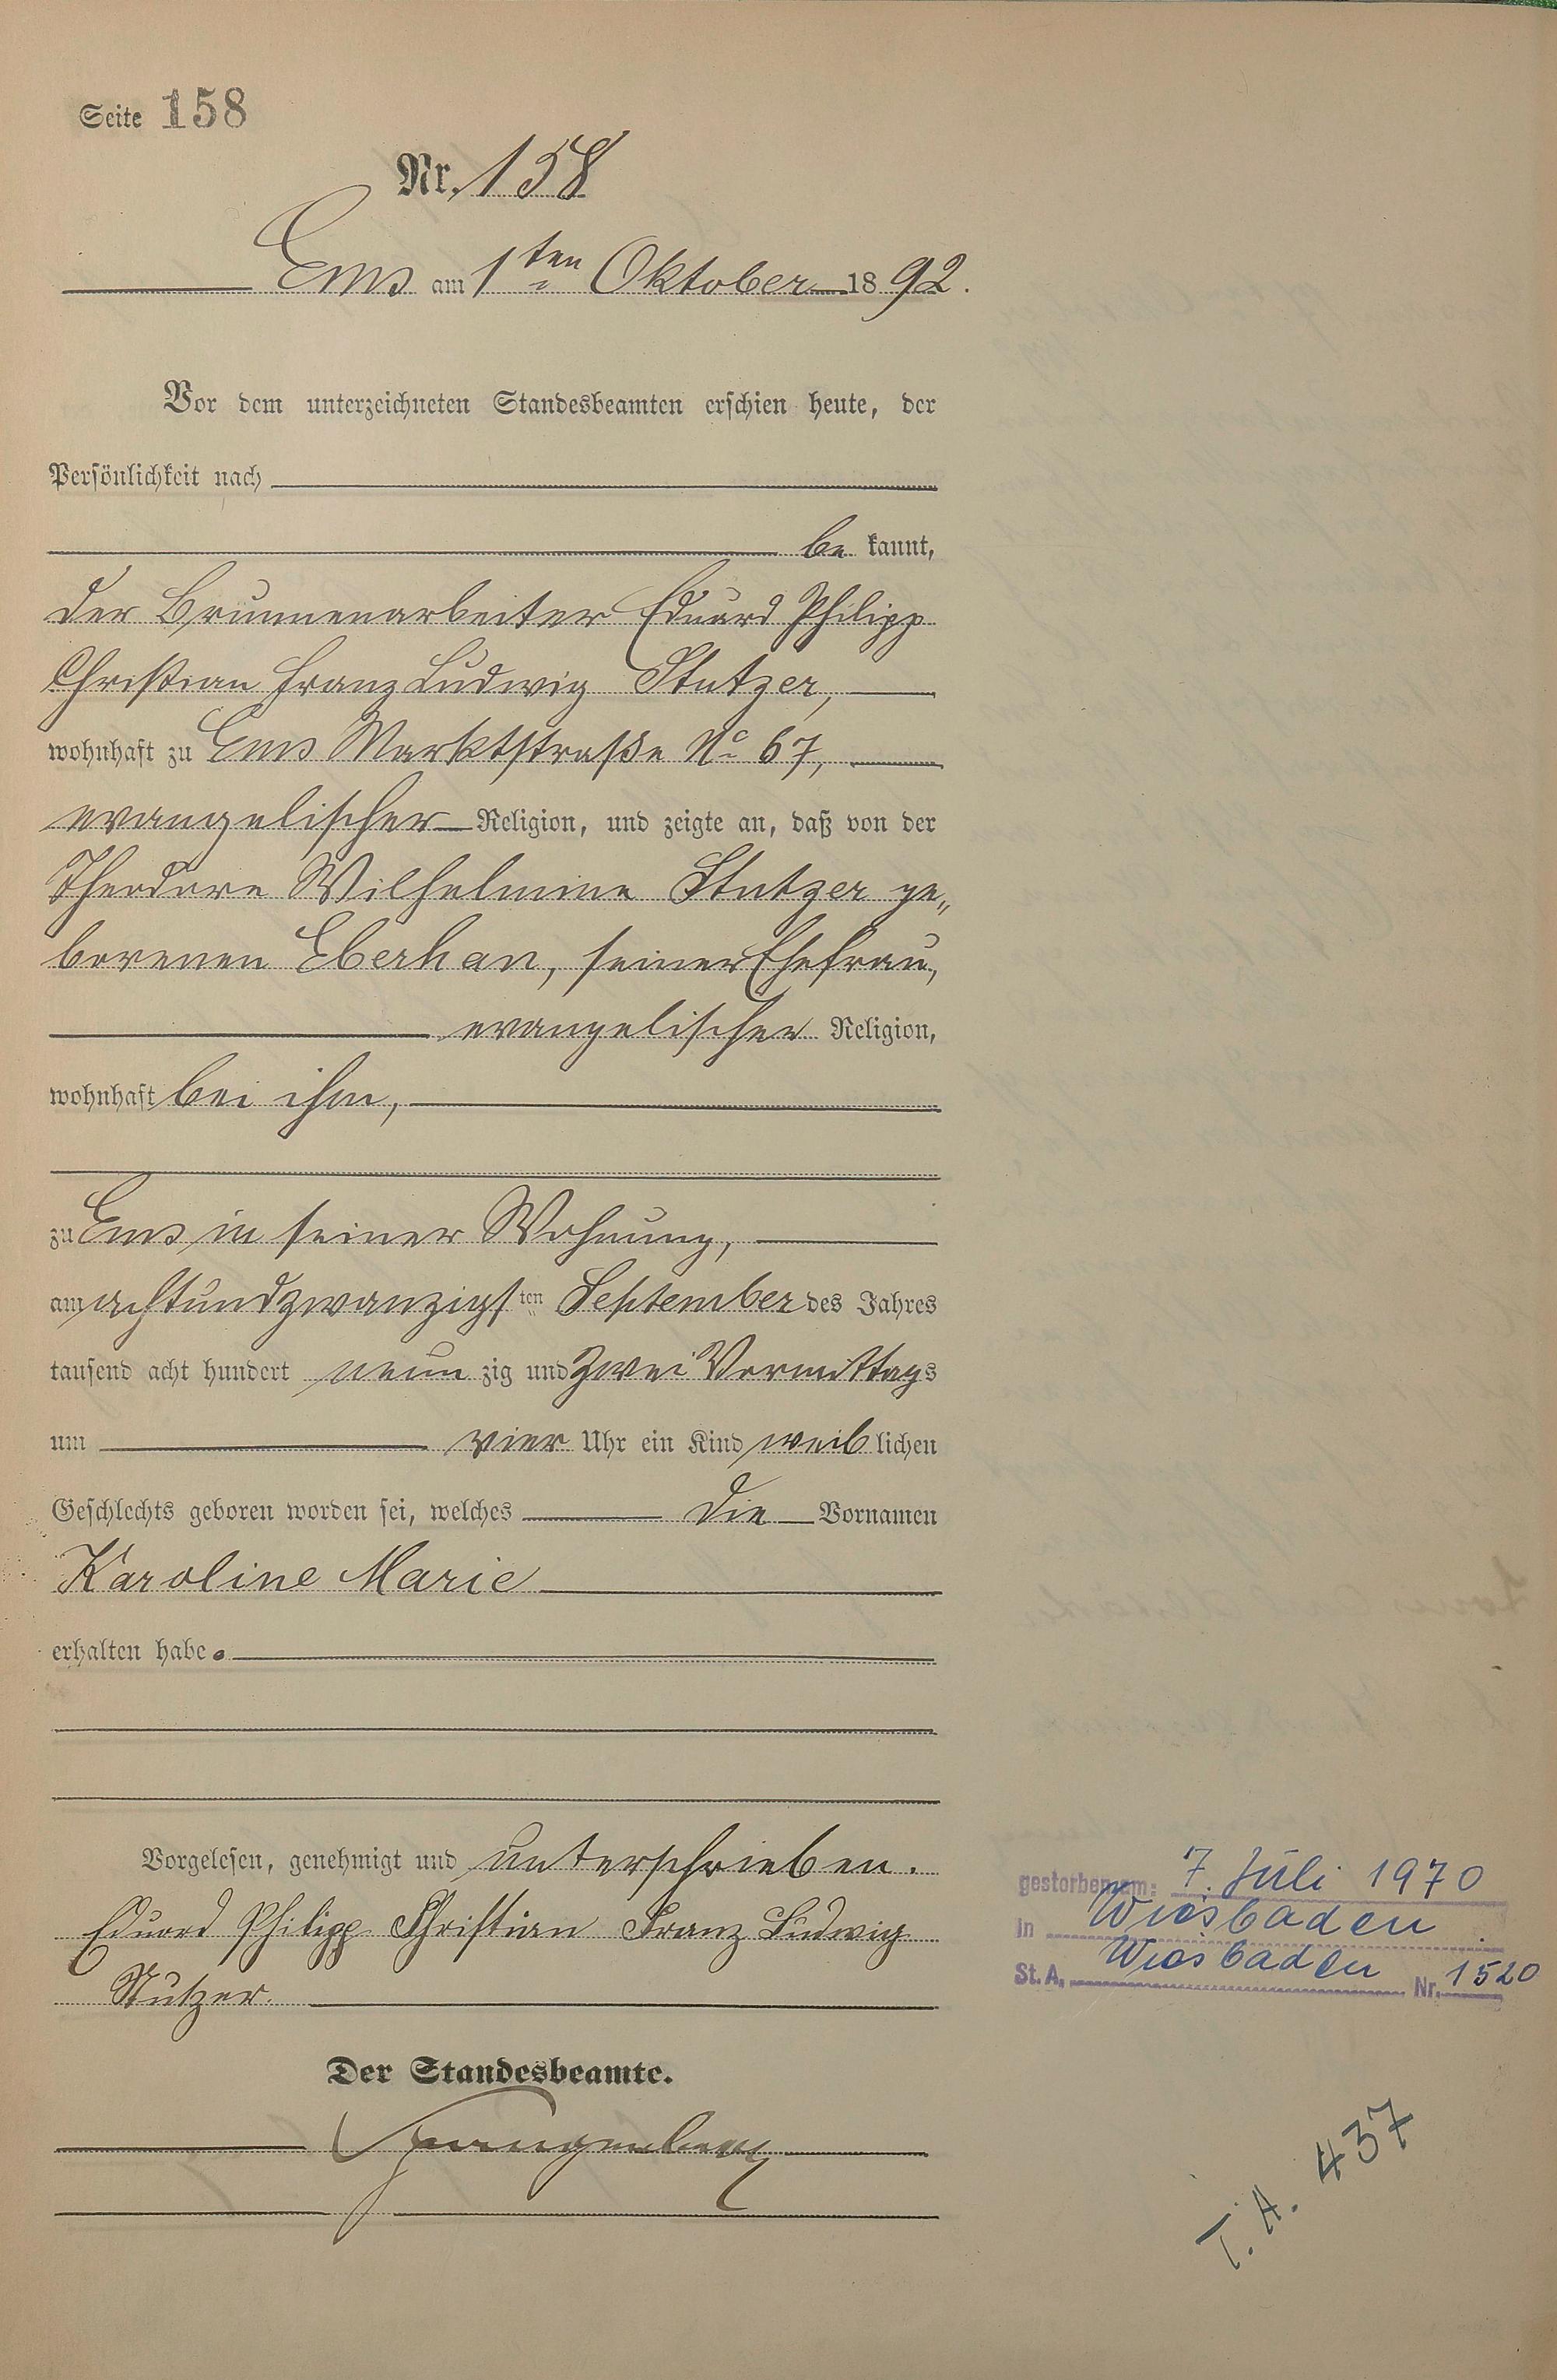 Seite 158
Nr. 158
Ems am 1ten Oktober 1892.
Vor dem unterzeichneten Standesbeamten erschien heute, der
Persönlichkeit nach
be kannt,
der Brunnenarbeiter Eduard Philipp
Christian Franz Ludwig Stutzer,
wohnhaft zu Ems Marktstraße No 67,
evangelischer Religion, und zeigte an, daß von der
Theodore Wilhelmine Stutzer ge„
borenen Eberhan, seiner Ehefrau,
evangelischer Religion,
wohnhaft bei ihm,
zu Ems in seiner Wohnung,
am achtundzwanzigsten September des Jahres
tausend acht hundert neun zig und zwei Vormittags
um vier Uhr ein Kind weiblichen
Geschlechts geboren worden sei, welches die Vornamen
Karoline Marie
erhalten habe.
Vorgelesen, genehmigt und unterschrieben.
Eduard Philipp Christian Franz Ludwig
Stutzer.
Der Standesbeamte.
gestorben am: 7. Juli 1970
in Wiesbaden
St. A. Wiesbaden Nr. 1520
T. A. 437